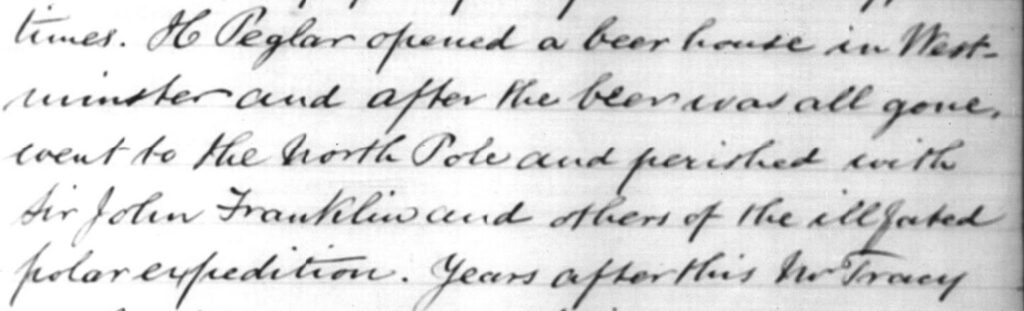 times. H Peglar opened a beer house in West-
minster and after the beer was all gone,
went to the North Pole and perished with
Sir John Franklin and others of the ill fated
polar expedition. Years after this Mr Tracy